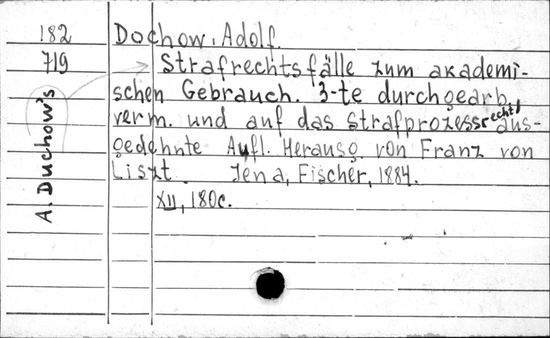 182
719
A. Duchow's
Dochow. Adolf.
Strafrechtsfälle zum akademi-
schen Gebrauch. 3-te durchgearb.
verm. und auf das Strafprozessrecht aus-
gedehnte Aufl. Herausg. von Franz von
Liszt. Jena, Fischer, 1884.
XII, 180c.